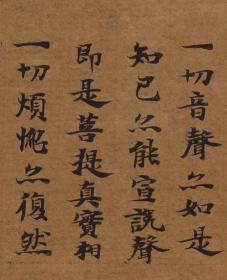 一切音聲亦如是
知已亦能宣說聲
即是菩提真實相
一切煩惱亦復然